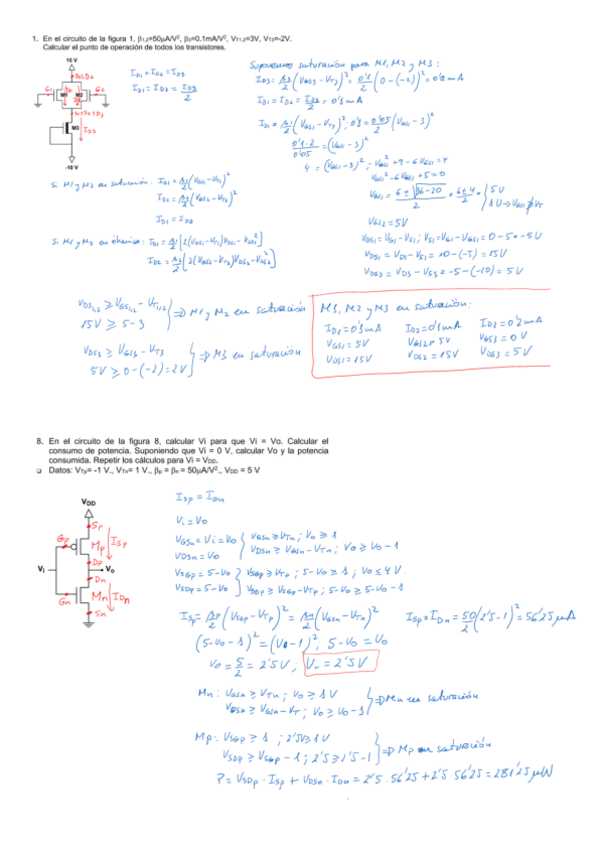 1. En el circuito de la figura 1, β1,2=50μA/V², β3=0.1mA/V², VT1,2=3V, VT3=-2V.
Calcular el punto de operación de todos los transistores.
10 V
G1
G2
M1
M2
M3
ID3
-10 V
ID1 + ID2 = ID3
ID1 = ID2 = ID3/2
Suponemos saturación para M1, M2 y M3:
ID3 = β3/2 (VGS3 - VT3)² = 0'1/2 (0-(-2))² = 0'2 mA
ID1 = ID2 = ID3/2 = 0'1 mA
ID1 = β1/2 (VGS1 - VT1)²; 0'1 = 0'05/2 (VGS1 - 3)²
0'1·2/0'05 = (VGS1 - 3)²
4 = (VGS1 - 3)²; VGS1² + 9 - 6VGS1 = 4
VGS1² - 6VGS1 + 5 = 0
VGS1 = 6 ± √36-20 / 2 = 6 ± 4 / 2 = { 5V
VGS2 = 5V
VDS1 = VD1 - VS1; VS1 = VG1 - VGS1 = 0 - 5 = -5V
VDS1 = VD1 - VS1 = 10 - (-5) = 15V
VDS3 = VD3 - VS3 = -5 - (-10) = 5V
Si M1 y M2 en saturación: ID1 = β1/2 (VGS1 - VT1)²
ID2 = β2/2 (VGS2 - VT2)²
ID1 = ID2
Si M1 y M2 en óhmica: ID1 = β1/2 [2(VGS1 - VT1)VDS1 - VDS1²]
ID2 = β2/2 [2(VGS2 - VT2)VDS2 - VDS2²]
VDS1,2 ≥ VGS1,2 - VT1,2
15V ≥ 5-3
⇒ M1 y M2 en saturación
VDS3 ≥ VGS3 - VT3
5V ≥ 0-(-2) = 2V
⇒ M3 en saturación
M1, M2 y M3 en saturación:
ID1 = 0'1mA ID2 = 0'1mA ID3 = 0'2mA
VGS1 = 5V VGS2 = 5V VGS3 = 0V
VDS1 = 15V VDS2 = 15V VDS3 = 5V
8. En el circuito de la figura 8, calcular Vi para que Vi = Vo. Calcular el
consumo de potencia. Suponiendo que Vi = 0 V, calcular Vo y la potencia
consumida. Repetir los cálculos para Vi = VDD.
❑ Datos: VTp= -1 V., VTn= 1 V., βp = βn = 50μA/V²., VDD = 5 V
VDD
Sp
Gp
Mp
ISp
Dp
Vi
Vo
Dn
Gn
Mn
IDn
Sn
ISp = IDn
Vi = Vo
VGSn = Vi = Vo
VDSn = Vo
VGSn ≥ VTn; Vo ≥ 1
VDSn ≥ VGSn - VTn; Vo ≥ Vo - 1
VSGp = 5 - Vo
VSDp = 5 - Vo
VSGp ≥ VTp; 5 - Vo ≥ 1; Vo ≤ 4V
VSDp ≥ VSGp - VTp; 5 - Vo ≥ 5 - Vo - 1
ISp = βp/2 (VSGp - VTp)² = βn/2 (VGSn - VTn)²
ISp = IDn = 50/2 (2'5 - 1)² = 56'25 μA
(5 - Vo - 1)² = (Vo - 1)²; 5 - Vo = Vo
Vo = 5/2 = 2'5V; Vi = 2'5V
Mn: VGSn ≥ VTn; Vo ≥ 1V
VDSn ≥ VGSn - VT; Vo ≥ Vo - 1
⇒ Mn en saturación
Mp: VSGp ≥ 1; 2'5V ≥ 1V
VSDp ≥ VSGp - 1; 2'5 ≥ 2'5 - 1
⇒ Mp en saturación
P = VSDp · ISp + VDSn · IDn = 2'5 · 56'25 + 2'5 · 56'25 = 281'25 μW